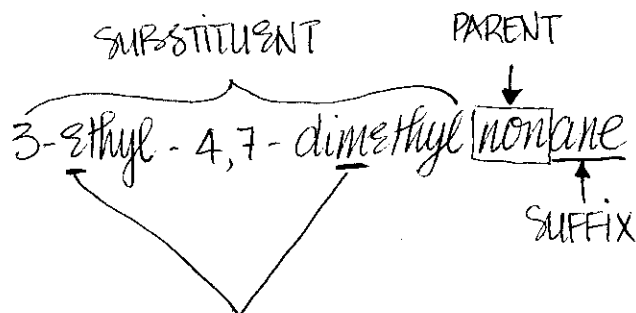 SUBSTITUENT
PARENT
3-Ethyl-4,7-dimethylnonane
SUFFIX